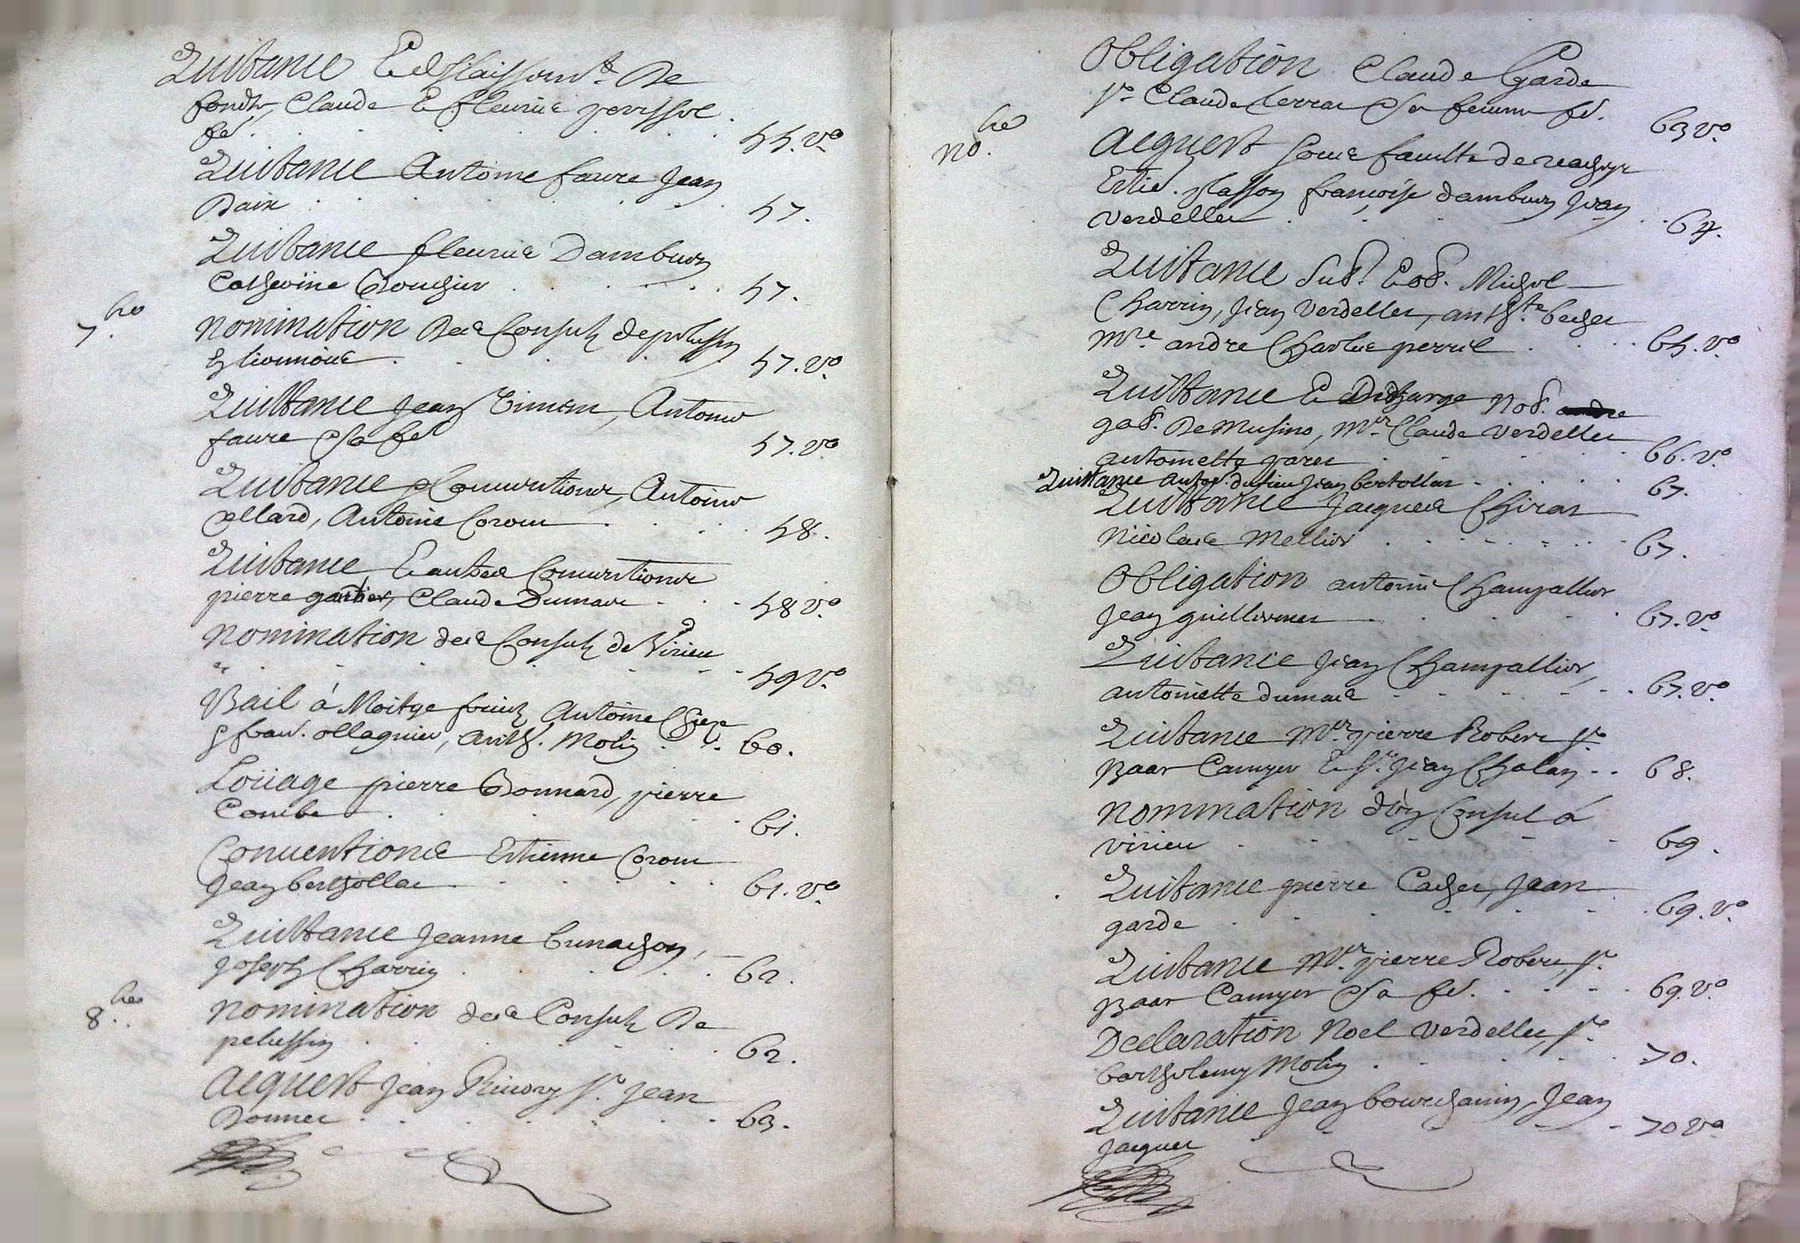 Quittance Et delaissem.t De
fonds, Claude Et fleurie
fe. 55. v.o
Quittance Antoine faure Jean
Bain 57.
Quittance fleurie Dambuen
Catherine Bouchier 57.
7.bre
Nomination Des Consuls de pelussin
57. v.o
Quittance Jean Antoine
faure Et sa fe. 57. v.o
Quittance Et Conventions, Antoine
Allard, Antoine Corom 58.
Quittance Et autres Conventions
pierre gautier, Claude Dumas 58 v.o
Nomination des Consuls de Virieu
59 v.o
Bail à Moitye fruits Antoine
fran. ollagnier, Anth. Molin 60.
Loüage pierre Bonnard, pierre
Combe 61.
Conventions Estienne Corom
Jean berthollac 61. v.o
Quittance Jeanne brunachon,
Joseph Charrin 62.
8.bre
Nomination des Consuls De
pelussin 62.
Acquest Jean s.r Jean
Bonnet 63.
Obligation Claude Garde
s.r Claude Et sa femme fe. 63 v.o
No.bre
Acquest sous faculté de rachept
Estie. plasson françoise dambuen Jean
Verdellet 64.
Quittance Sub. Et ob. Michel
Charrin, Jean Verdellet, anth.te
M.re andre Charles perril 65. v.o
Quittance Et Décharge Nob.
gab. De Musino, M.re Claude Verdellet
antoinette 66. v.o
Quittance Jean bertollac 67.
Quittance Jacques Chirat
Nicolas Mellier 67.
Obligation antoine Champallier
Jean guillermet 67. v.o
Quittance Jean Champallier,
antoinette dumas 67. v.o
Quittance M.re pierre Robert s.r
Baar Camyer Et s.r Jean Chalan 68.
Nomination d'un Consul à
Virieu 69.
Quittance pierre Cachet, Jean
garde 69. v.o
Quittance M.re pierre Robert, s.r
Baar Camyer Et sa fe. 69. v.o
Declaration Noel Verdellet, s.r
bartholemy Molin 70.
Quittance Jean bourchanin, Jean
Jacques 70 v.o